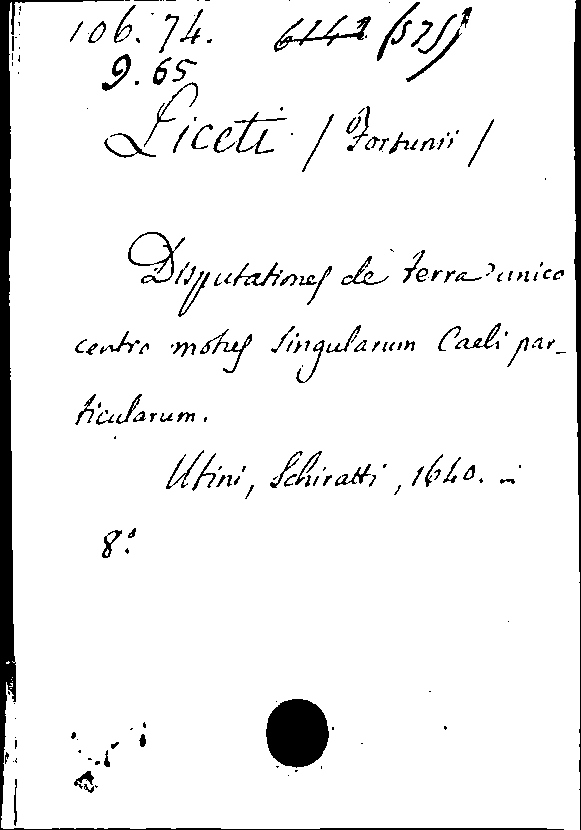 106.74. 6142 (575)
9.65
Liceti / Fortunii /
Disputationes de terra unico
centro motus singularum Caeli par-
ticularum.
Utini, Schiratti, 1640. in
8°